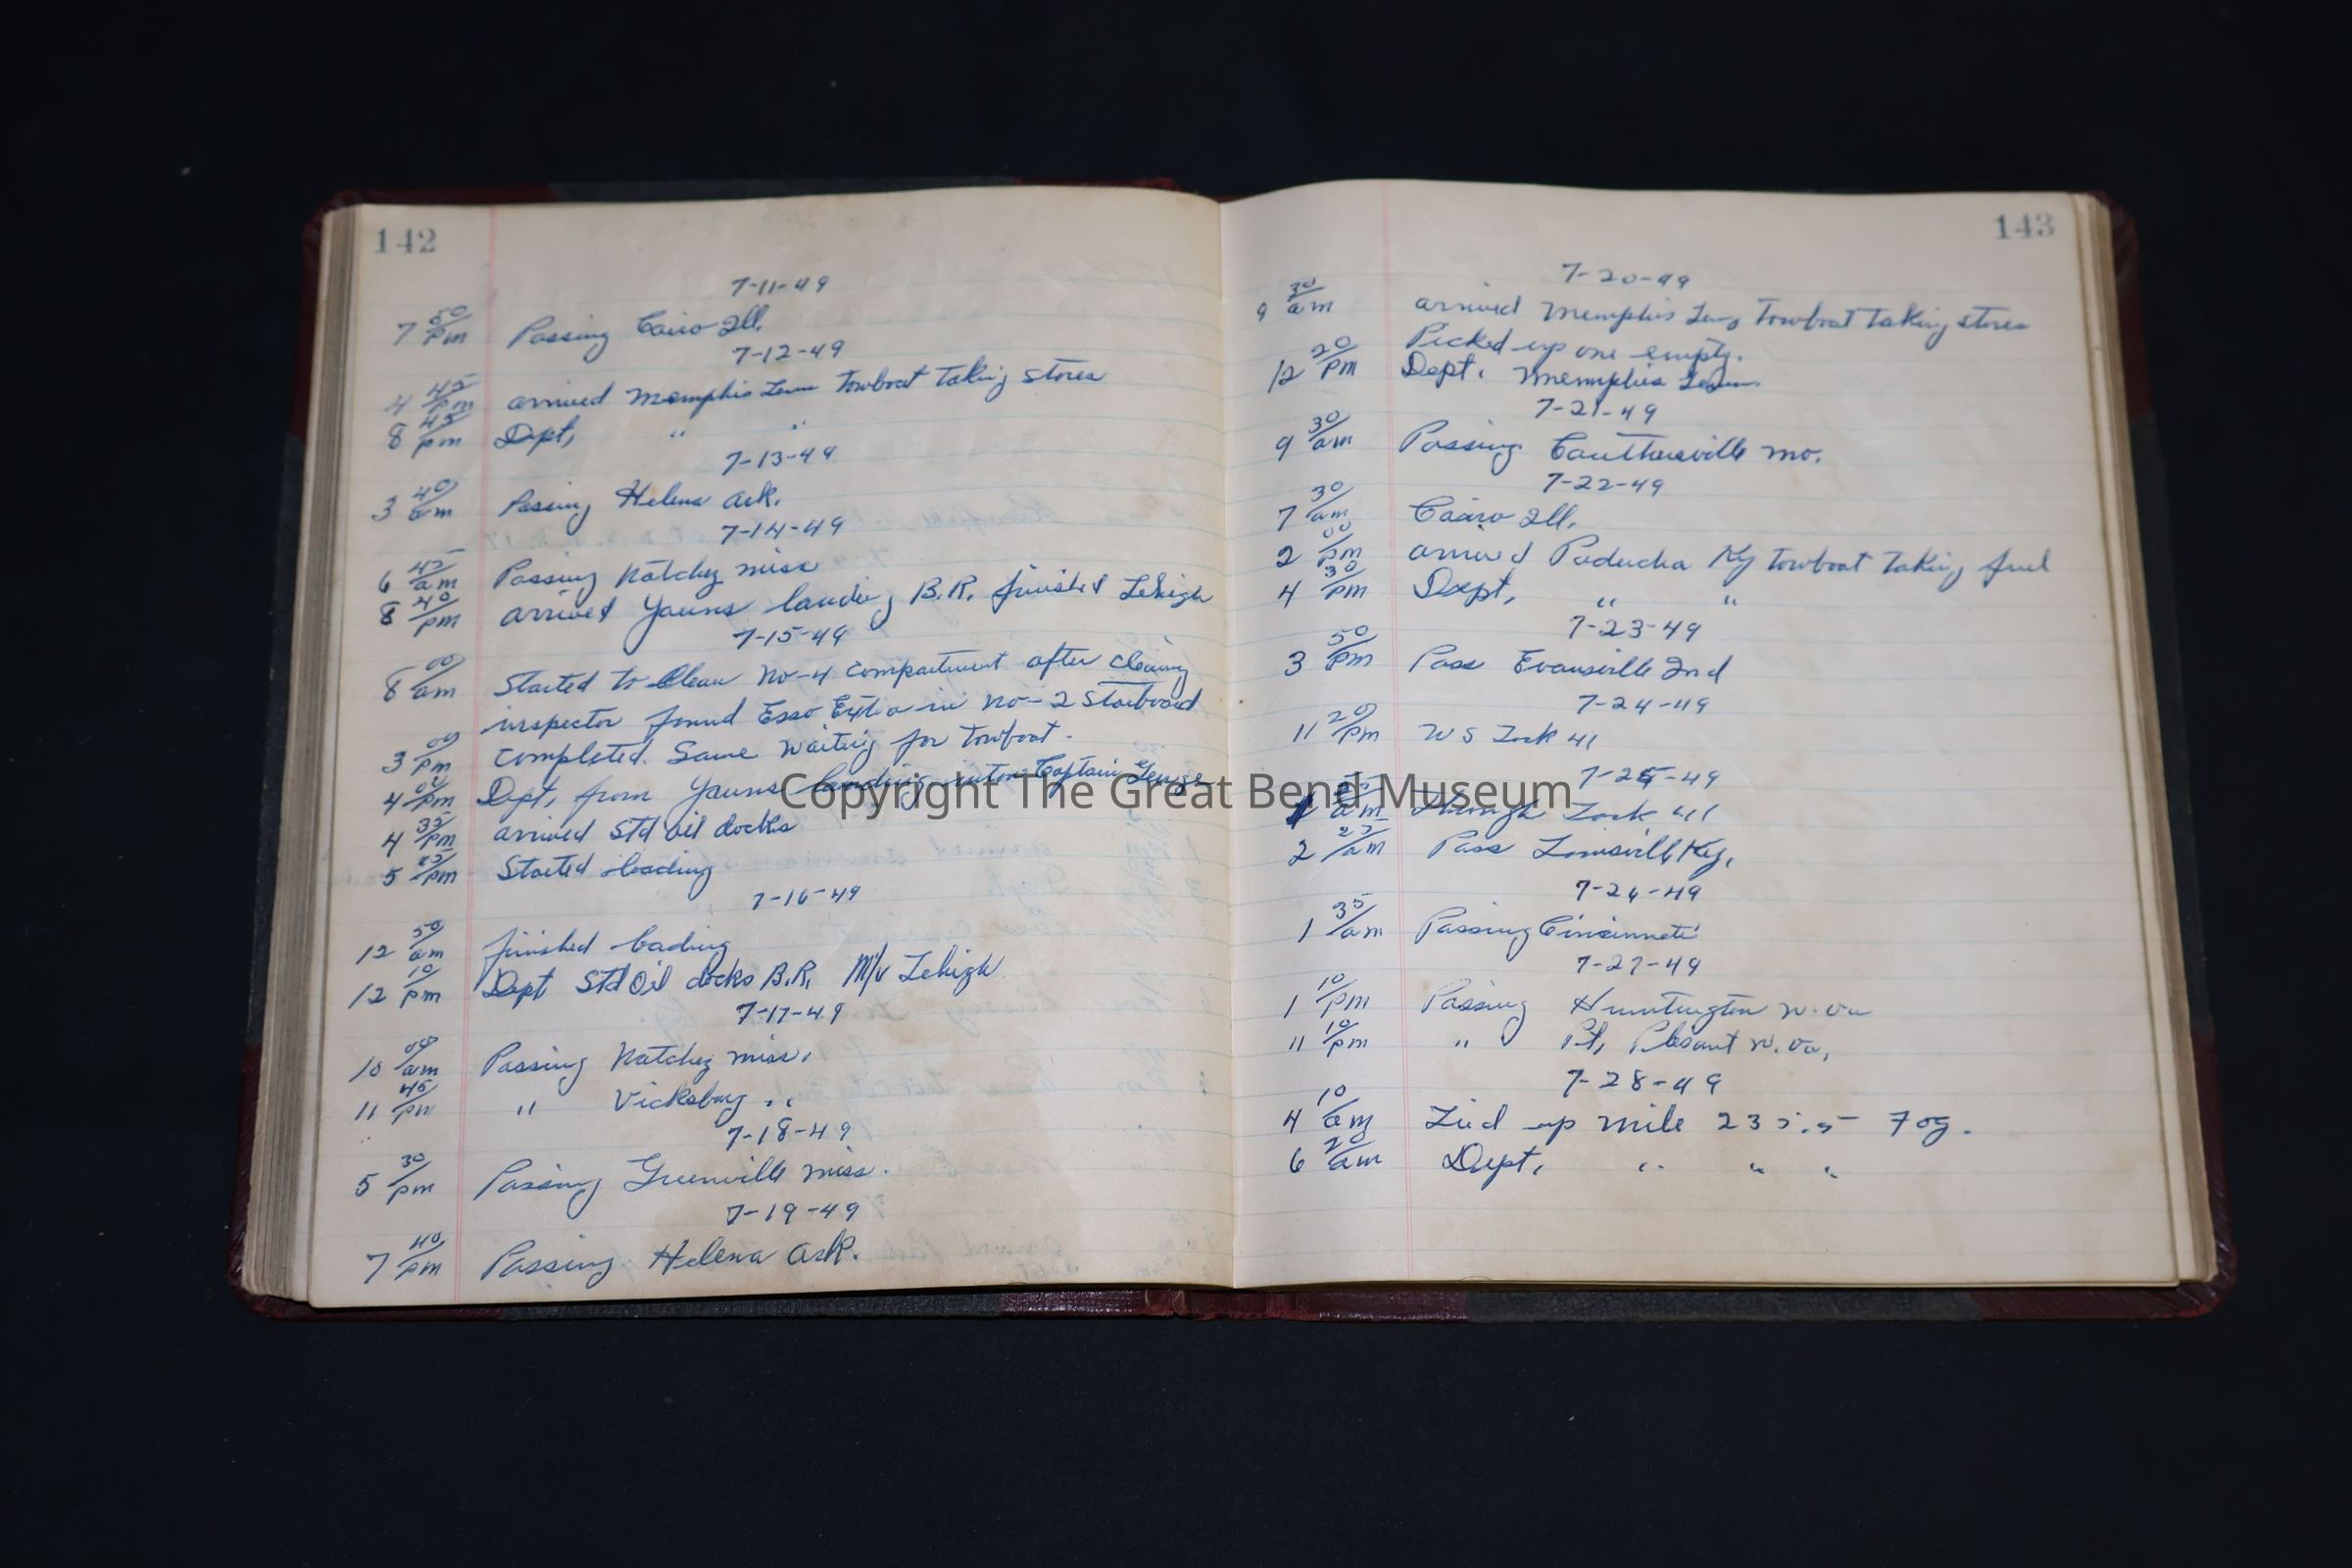 142
7-11-49
7 50/pm Passing Cairo Ill.
7-12-49
4 45/pm arrived Memphis Tenn towboat taking stores
8 45/pm Dept, " "
7-13-49
3 40/am Passing Helena Ark.
7-14-49
6 45/am Passing Natchez miss
8 40/pm arrived Youns landing B.R. finished Lehigh
7-15-49
8 00/am Started to Clean No-4 compartment after cleaning
inspector found Esso Extra in no-2 Starboard
3 00/pm completed. Same waiting for towboat.
4 00/pm Dept, from Youns landing Captain George
4 35/pm arrived Std oil docks
5 25/pm Started loading
7-16-49
12 50/am finished loading
12 10/pm Dept Std Oil docks B.R. M/v Lehigh
7-17-49
10 00/am Passing Natchez miss.
11 45/pm " Vicksburg "
7-18-49
5 30/pm Passing Greenville miss.
7-19-49
7 40/pm Passing Helena Ark.
143
7-20-49
9 30/am arrived Memphis Tenn towboat taking stores
Picked up one empty.
12 20/pm Dept. Memphis Tenn.
7-21-49
9 30/am Passing Cauthersville mo.
7-22-49
7 30/am Cairo Ill.
2 00/pm arrived Paducha Ky towboat taking fuel
4 30/pm Dept, " "
7-23-49
3 50/pm Pass Evansville Ind
7-24-49
11 20/pm W S Lock 41
7-25-49
1 55/am through Lock 41
2 25/am Pass Louisville Ky.
7-26-49
1 35/am Passing Cincinnati
7-27-49
1 10/pm Passing Huntington W. Va
11 10/pm " Pt, Plesant W. Va,
7-28-49
4 10/am Tied up mile 235.5 Fog.
6 20/am Dept, " " "
Copyright The Great Bend Museum